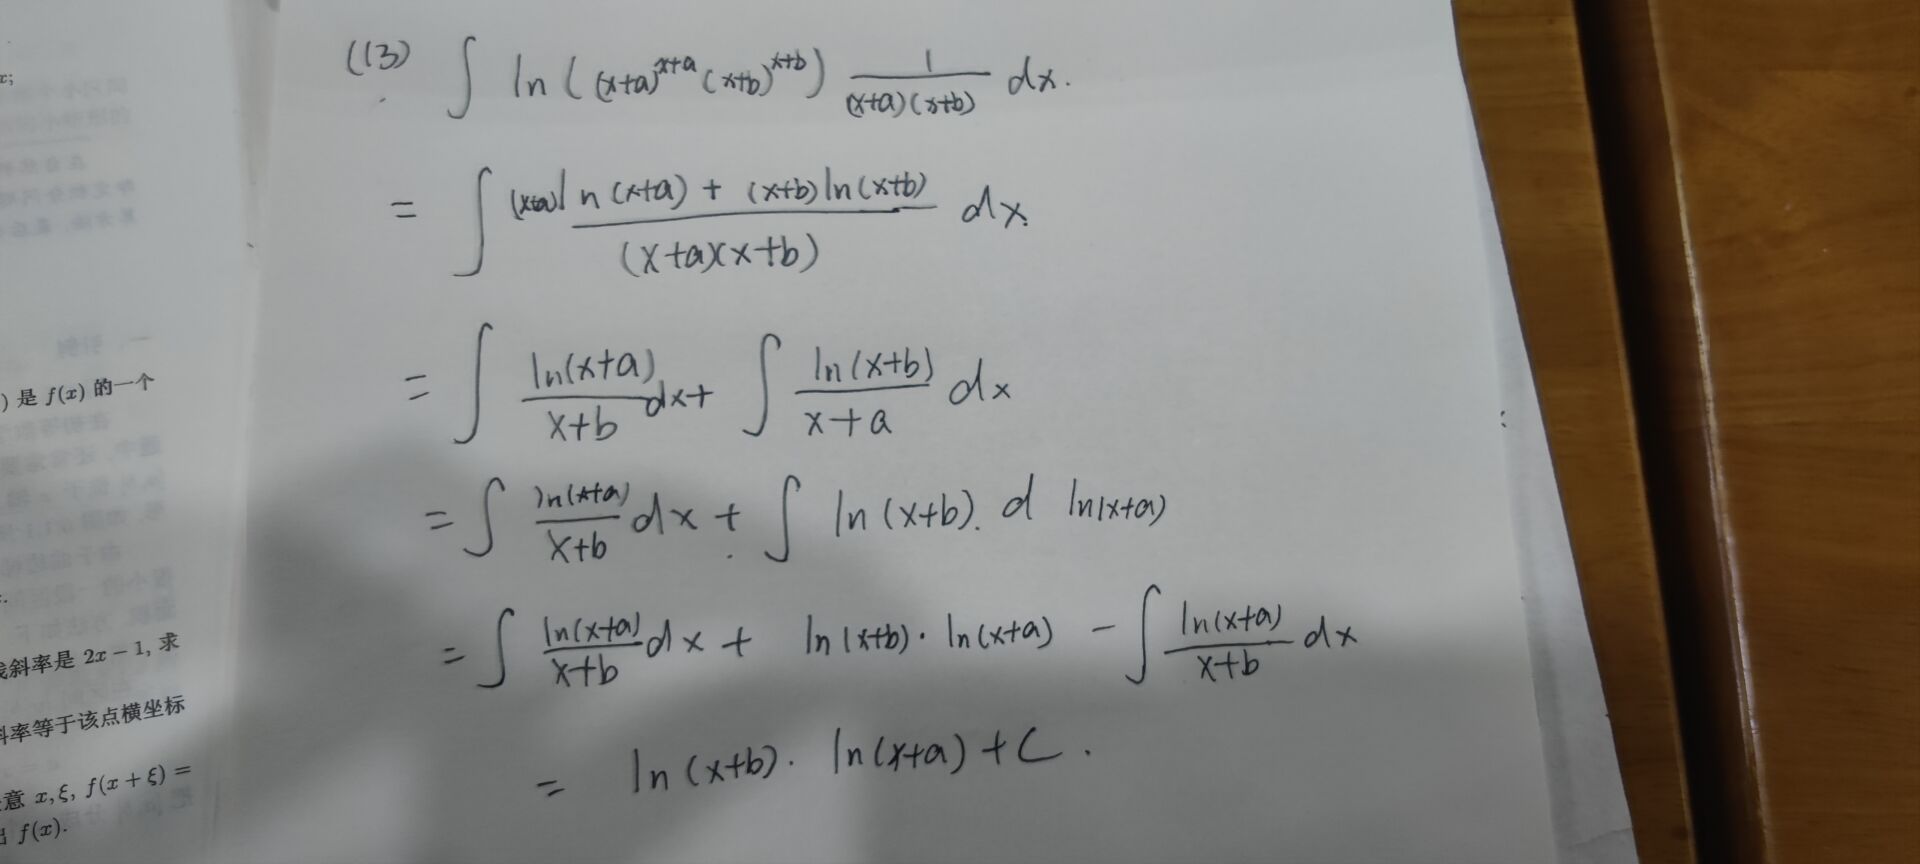 x;
) 是 f(x) 的一个
斜率是 2x − 1, 求
斜率等于该点横坐标
意 x,ξ, f(x + ξ) =
出 f(x).
一、引例
(13) ∫ ln((x+a)^{x+a}(x+b)^{x+b}) \frac{1}{(x+a)(x+b)} dx.
= ∫ \frac{(x+a)ln(x+a) + (x+b)ln(x+b)}{(x+a)(x+b)} dx.
= ∫ \frac{ln(x+a)}{x+b} dx + ∫ \frac{ln(x+b)}{x+a} dx
= ∫ \frac{ln(x+a)}{x+b} dx + ∫ ln(x+b). d ln(x+a)
= ∫ \frac{ln(x+a)}{x+b} dx + ln(x+b)·ln(x+a) − ∫ \frac{ln(x+a)}{x+b} dx
= ln(x+b)· ln(x+a) + C.